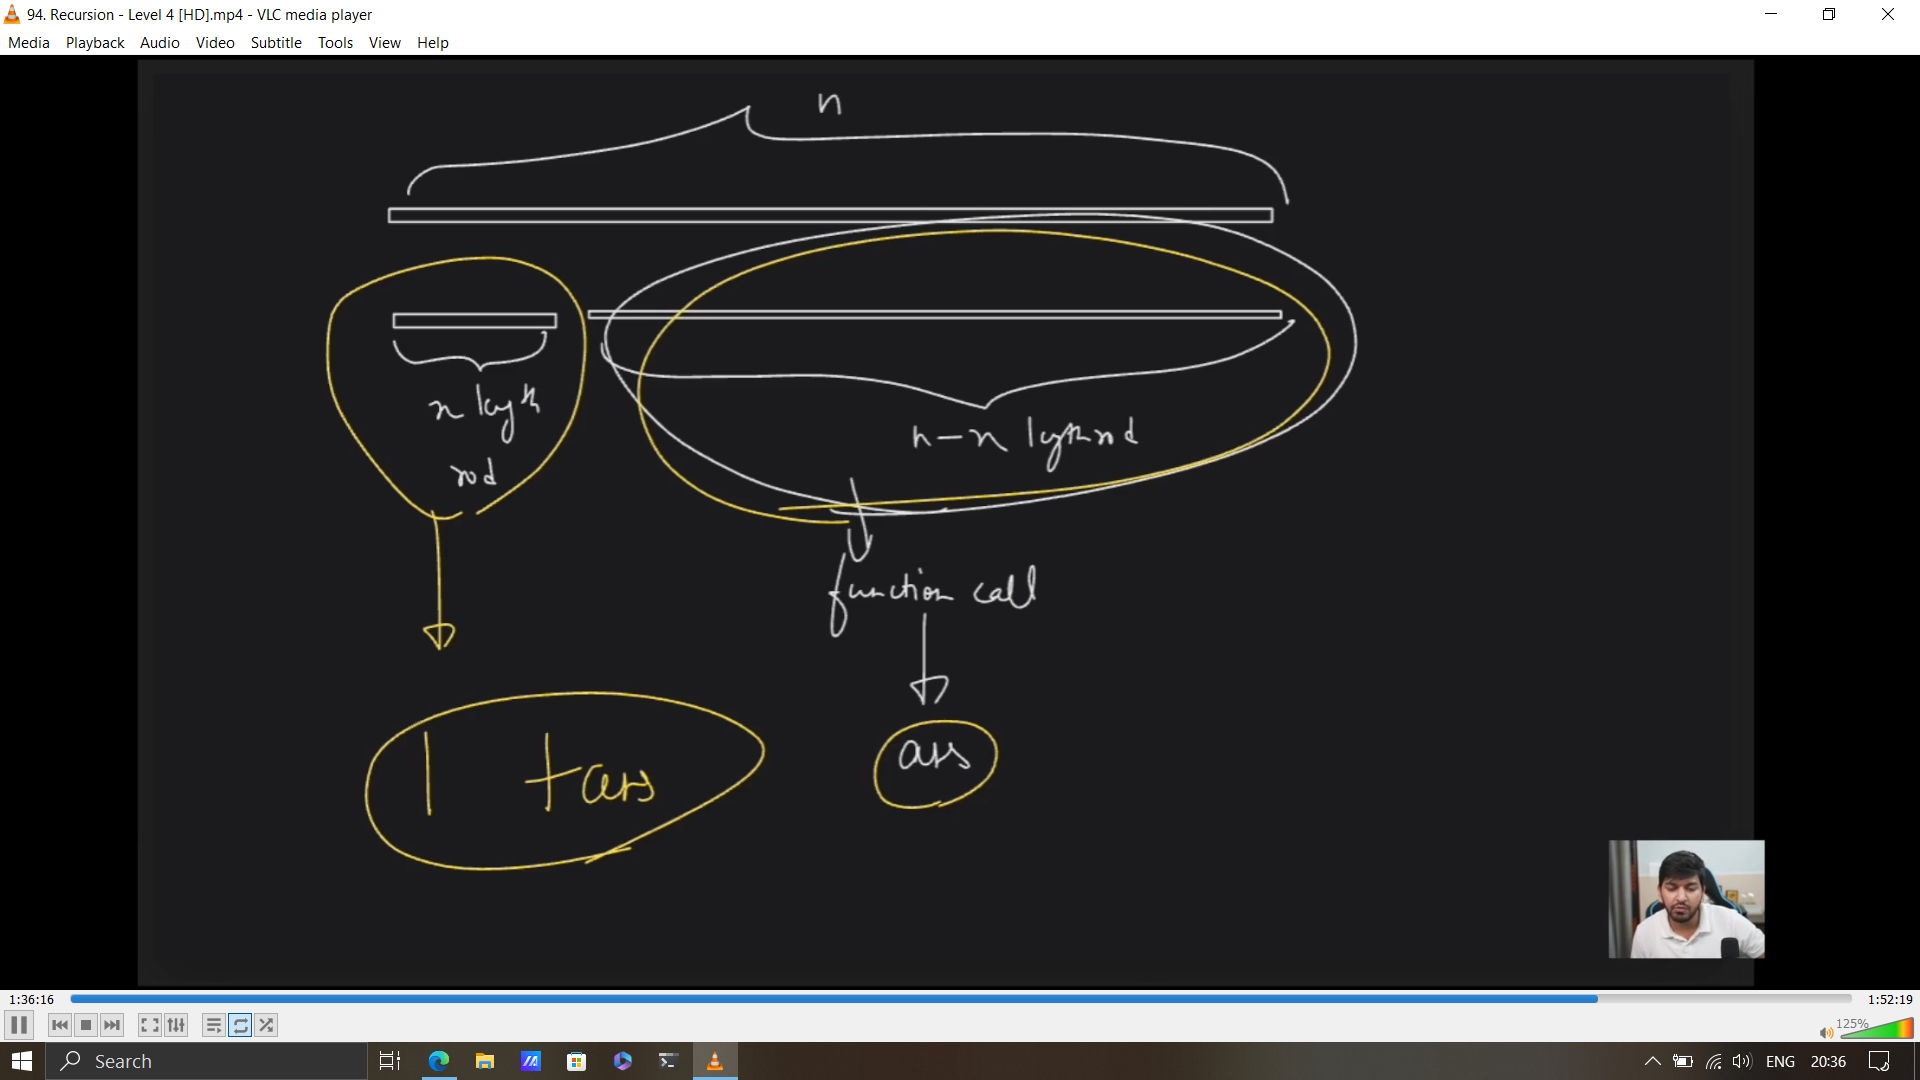 94. Recursion - Level 4 [HD].mp4 - VLC media player
Media Playback Audio Video Subtitle Tools View Help
n
rod
function call
ans
1 + ans
1:36:16
1:52:19
125%
Search
ENG 20:36